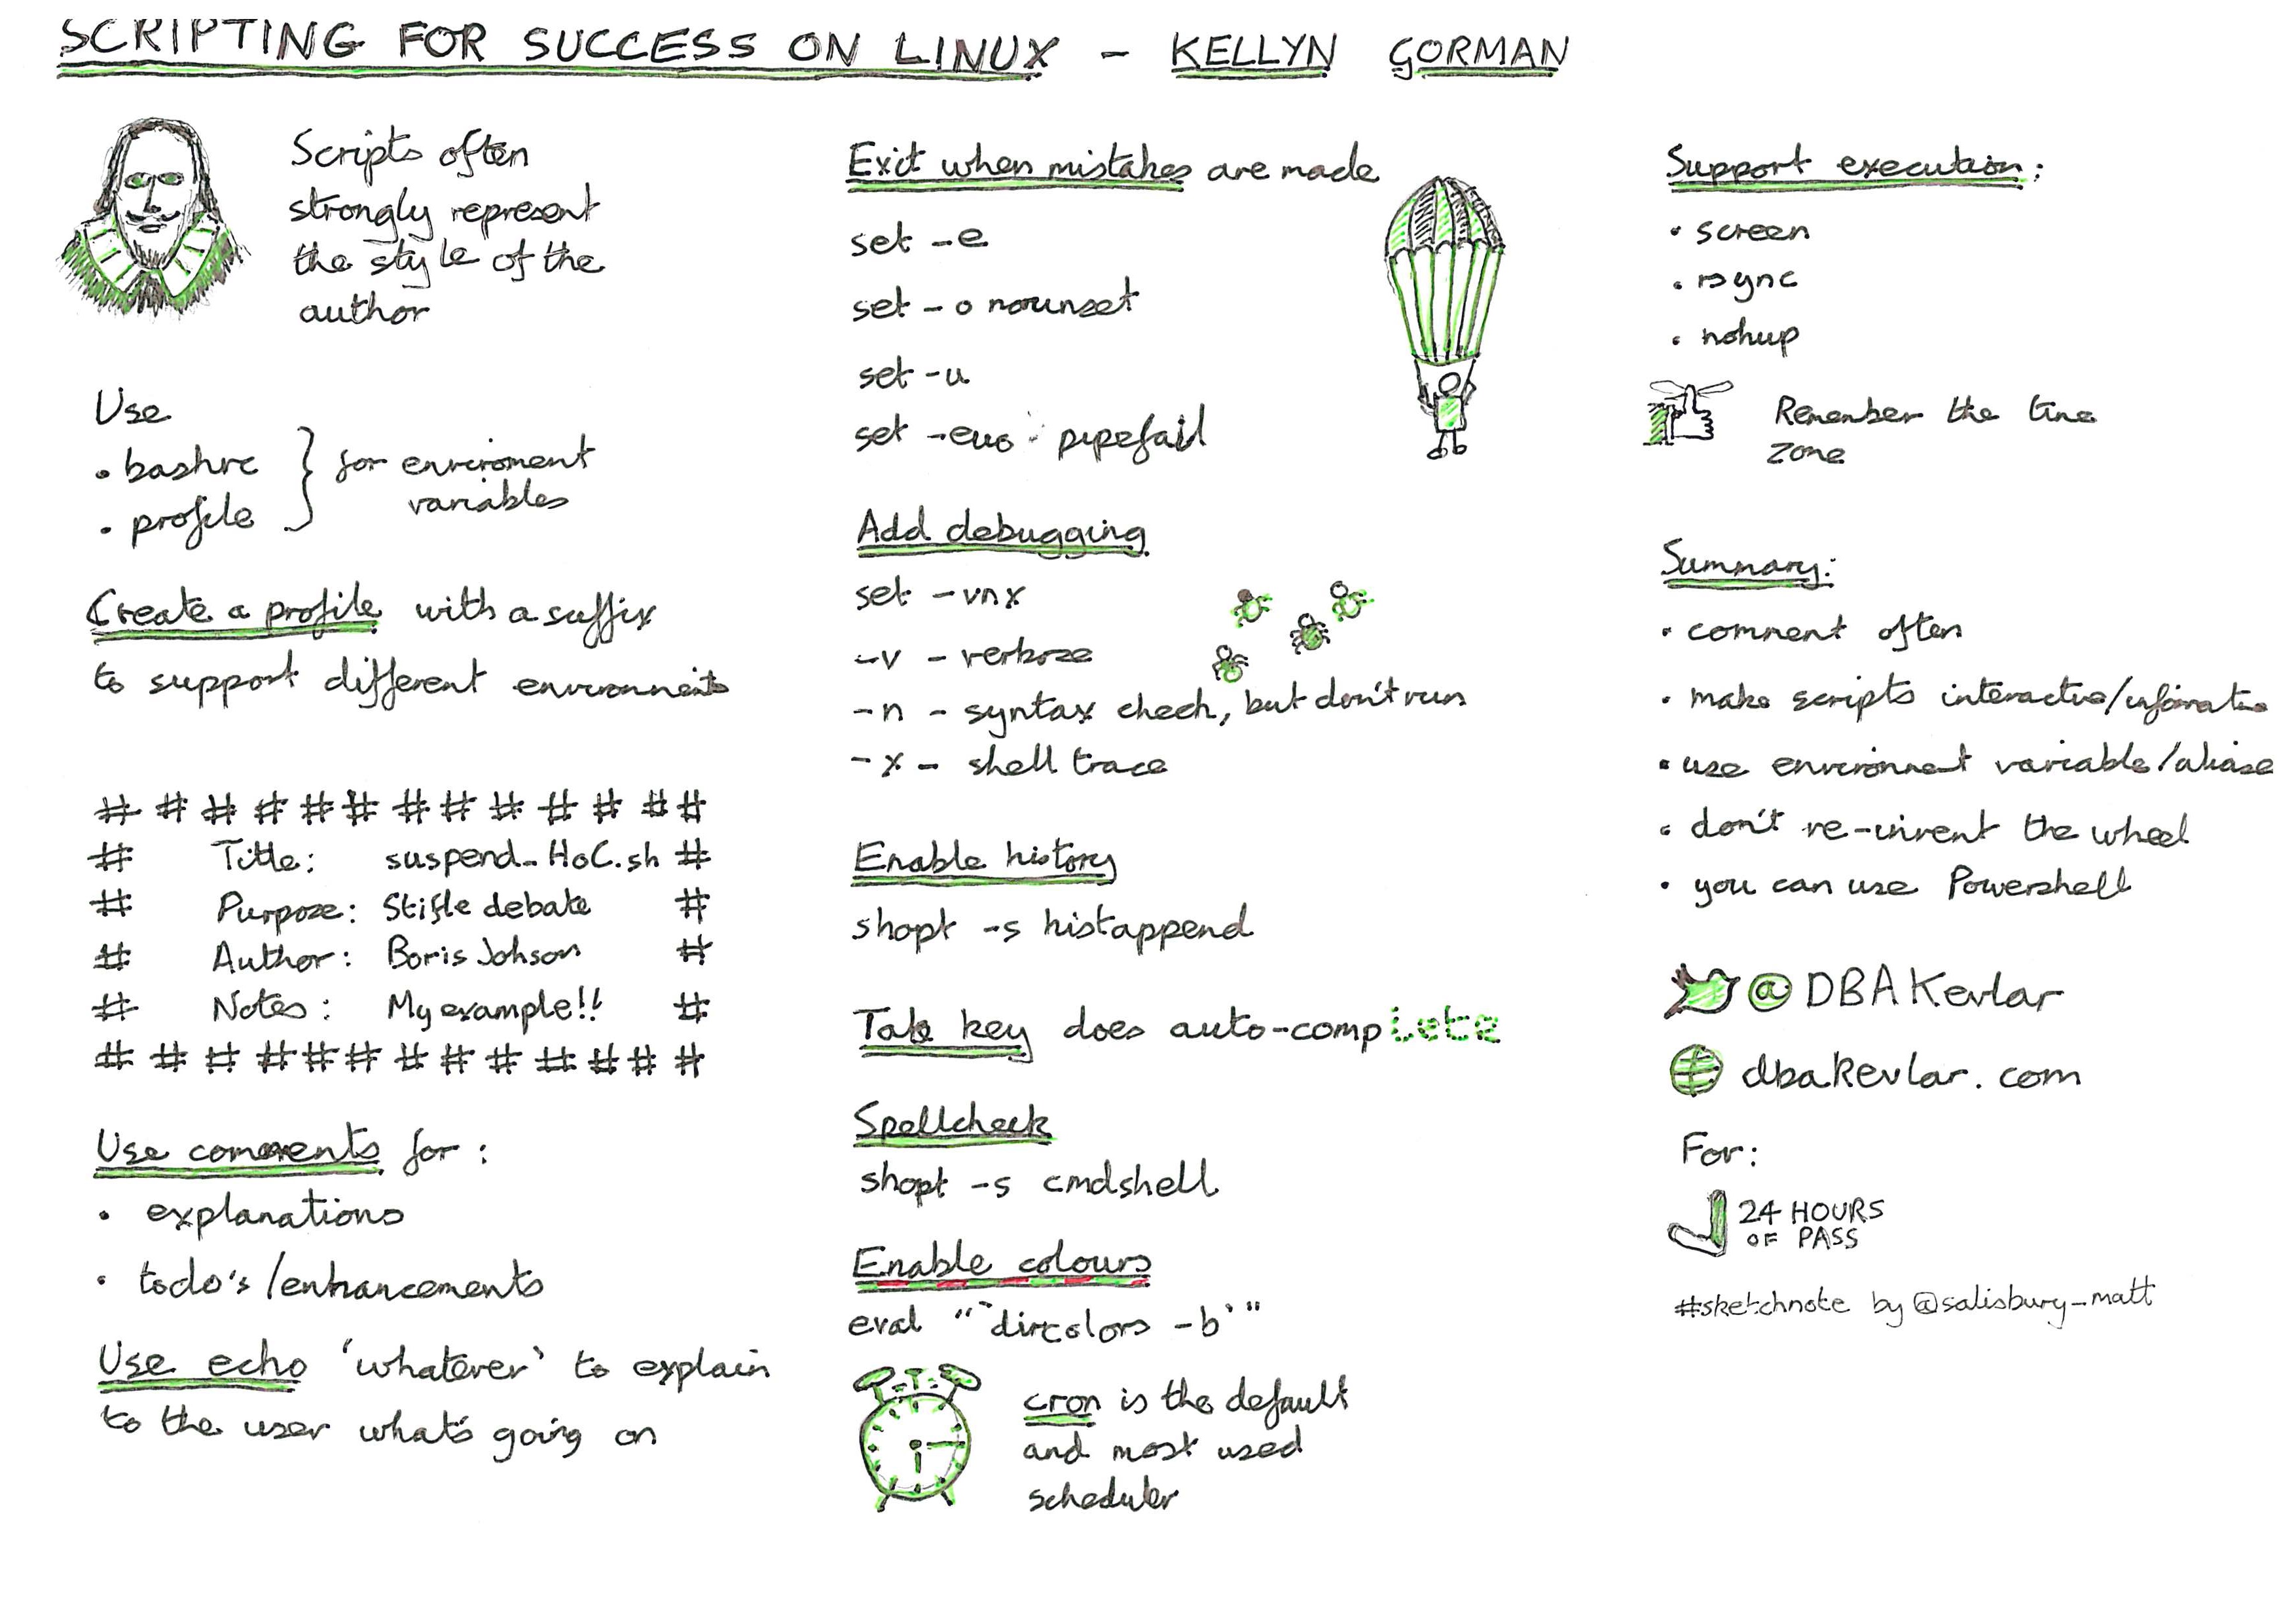 SCRIPTING FOR SUCCESS ON LINUX - KELLYN GORMAN
Scripts often
strongly represent
the style of the
author
Use
• bashrc
• profile
for enviroment
variables
Create a profile with a suffix
to support different environments
# # # # # # # # # # # # #
# Title: suspend_HoC.sh #
# Purpose: Stifle debate #
# Author: Boris Johson #
# Notes: My example!! #
# # # # # # # # # # # # #
Use comments for:
• explanations
• todo's/enhancements
Use echo 'whatever' to explain
to the user what's going on
Exit when mistakes are made
set -e
set -o nounset
set -u
set -euo pipefail
Add debugging
set -vnx
-v - verbose
-n - syntax check, but don't run
-x - shell trace
Enable history
shopt -s histappend
Tab key does auto-complete
Spellcheck
shopt -s cmdshell
Enable colours
eval "`dircolors -b`"
cron is the default
and most used
scheduler
Support execution:
• screen
• rsync
• nohup
Remember the time
zone
Summary:
• comment often
• make scripts interactive/informative
• use environment variable/aliase
• don't re-invent the wheel
• you can use Powershell
@DBAKevlar
dbakevlar.com
For:
24 HOURS
OF PASS
#sketchnote by @salisbury_matt